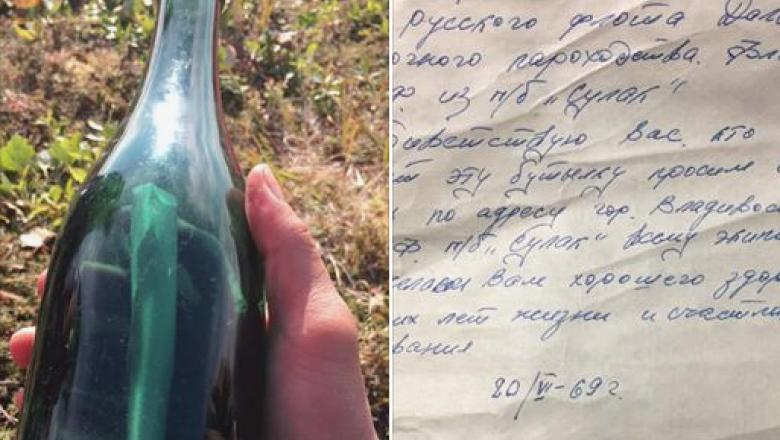 Русского флота Дал
очного пароходства. Вл
ф. из п/б "Сулак"
ветствую Вас. кто
т эту бутылку просим
по адресу гор. Владивос
ф. п/б "Сулак" всему экип
Вам хорошего здор
их лет жизни и счастли
вания
20/VI-69 г.